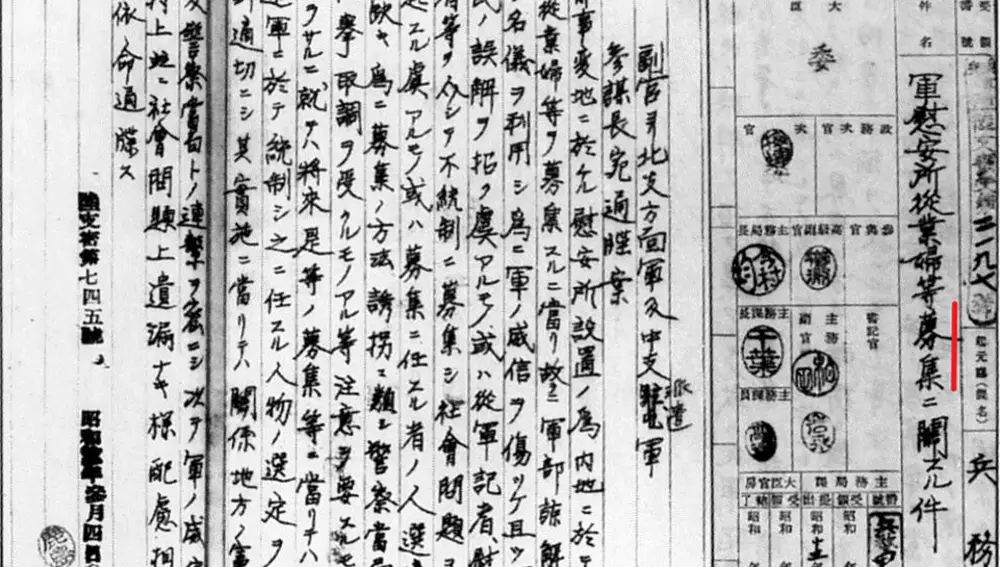 二一九七
起元廳(課名)
兵務
件名
軍慰安所從業婦等募集ニ關スル件
大臣
委
政務次官
次官
參與官
高級副官
主務局長
今村
書記官
主務副官
主務課長
千葉
主務課員
主務局課
大臣官房
昭和
昭和
昭和
昭和
副官ヨリ北支方面軍及中支派遣軍
參謀長宛通牒案
事變地ニ於ケル慰安所設置ノ為内地ニ於テ
從業婦等ヲ募集スルニ當リ故ラニ軍部諒解
名儀ヲ利用シ為ニ軍ノ威信ヲ傷ツケ且ツ
民ノ誤解ヲ招ク虞アルモノ或ハ從軍記者、慰
者等ヲ介シテ不統制ニ募集シ社會問題ヲ
起スル虞アルモノ或ハ募集ニ任スル者ノ人選
欠キ為ニ募集ノ方法誘拐ニ類シ警察當局
擧取調ヲ受クルモノアル等注意ヲ要スルモ
ラサルニ就テハ將來是等ノ募集等ニ當リテハ
遣軍ニ於テ統制シ之ニ任スル人物ノ選定ヲ
到適切ニシ其實施ニ當リテハ關係地方ノ憲
及警察當局トノ連繫ヲ密ニシ次テ軍ノ威
持上並ニ社會問題上遺漏ナキ樣配慮相
依命通牒ス
陸支密第七四五號 昭和拾參年參月四日